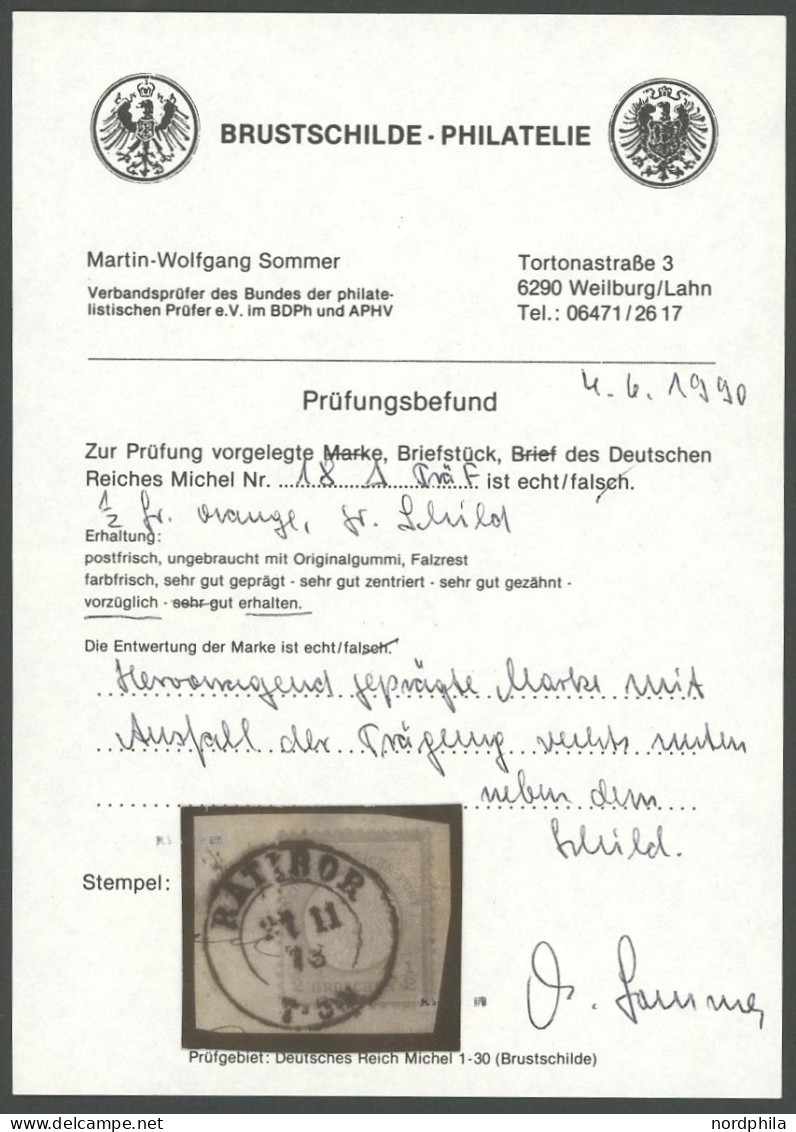 BRUSTSCHILDE - PHILATELIE
Martin-Wolfgang Sommer
Verbandsprüfer des Bundes der philate-
listischen Prüfer e.V. im BDPh und APHV
Tortonastraße 3
6290 Weilburg/Lahn
Tel.: 06471/26 17
4. 6. 1990
Prüfungsbefund
Zur Prüfung vorgelegte Marke, Briefstück, Brief des Deutschen
Reiches Michel Nr. 18 PräF ist echt/falsch.
1/2 Gr. orange, gr. Schild
Erhaltung:
postfrisch, ungebraucht mit Originalgummi, Falzrest
farbfrisch, sehr gut geprägt - sehr gut zentriert - sehr gut gezähnt -
vorzüglich - sehr gut erhalten.
Die Entwertung der Marke ist echt/falsch.
Hervorragend geprägte Marke mit
Ausfall der Prägung rechts unten
neben dem
Schild.
Stempel:
RATIBOR
27 11
73
GROSCHEN
Sommer
Prüfgebiet: Deutsches Reich Michel 1-30 (Brustschilde)
nordphila